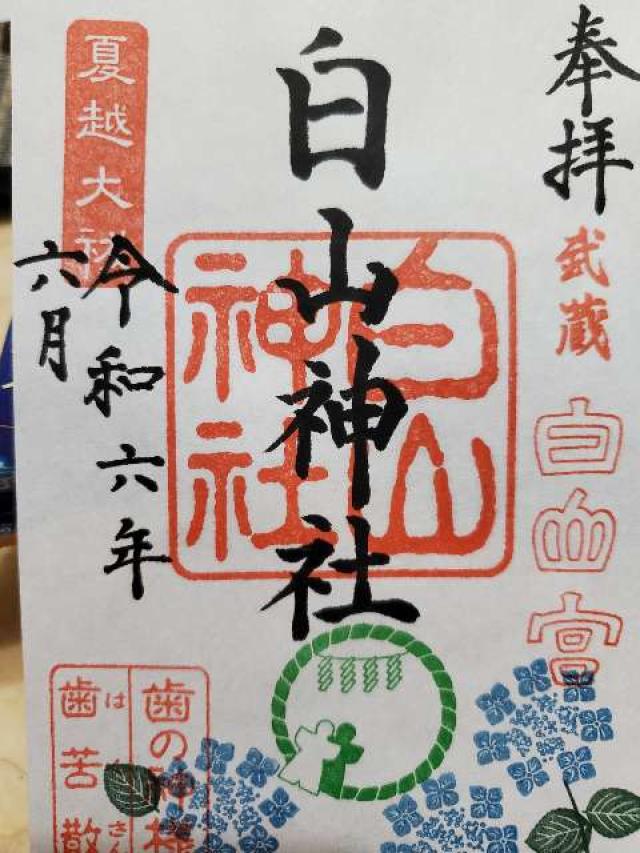 奉拝
武蔵
白山宮
白山神社
白山
神社
夏越大祓
令和六年
六月
歯の神様
歯苦散
はさん